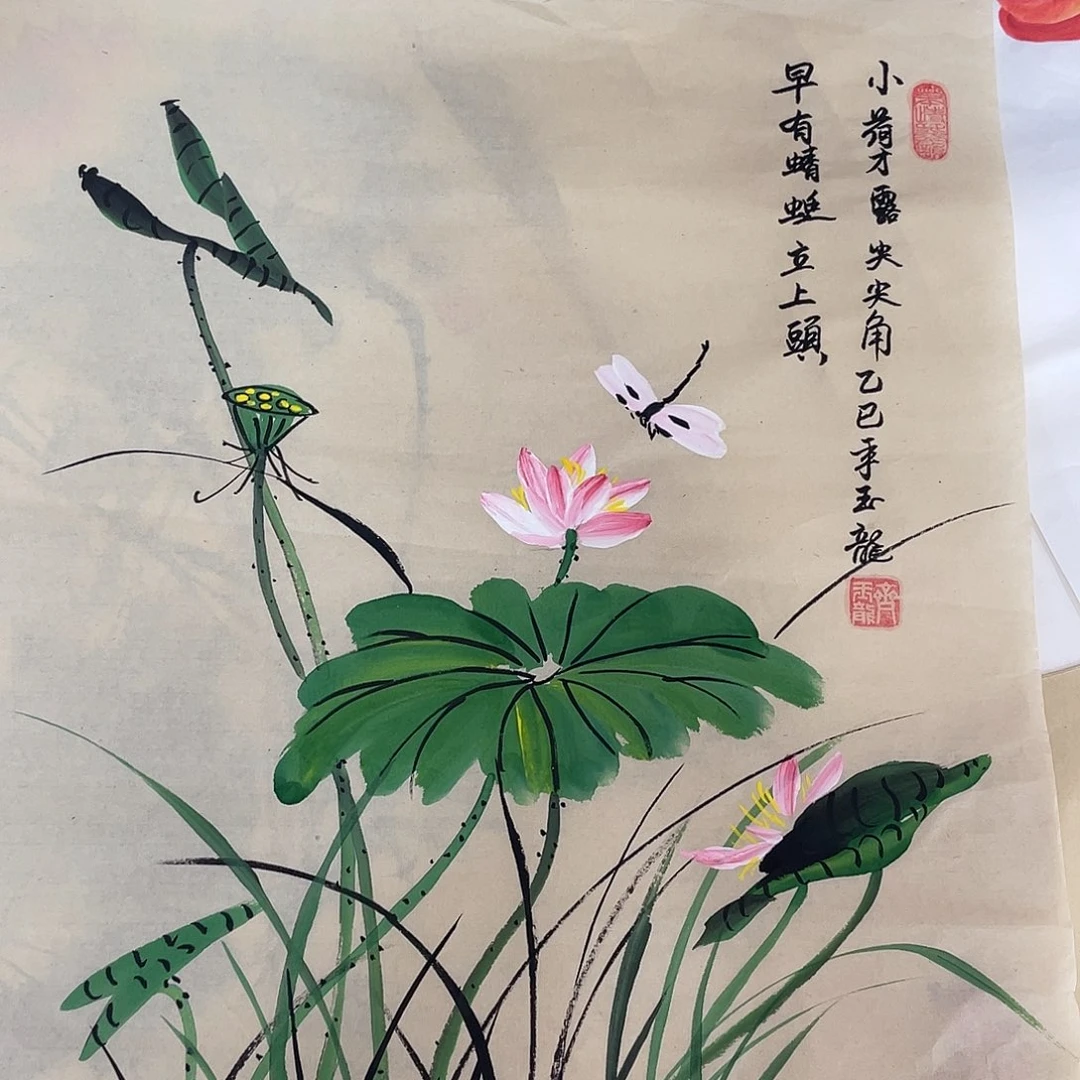 小荷才露尖尖角乙巳年玉龍
早有蜻蜓立上頭
齊玉龍